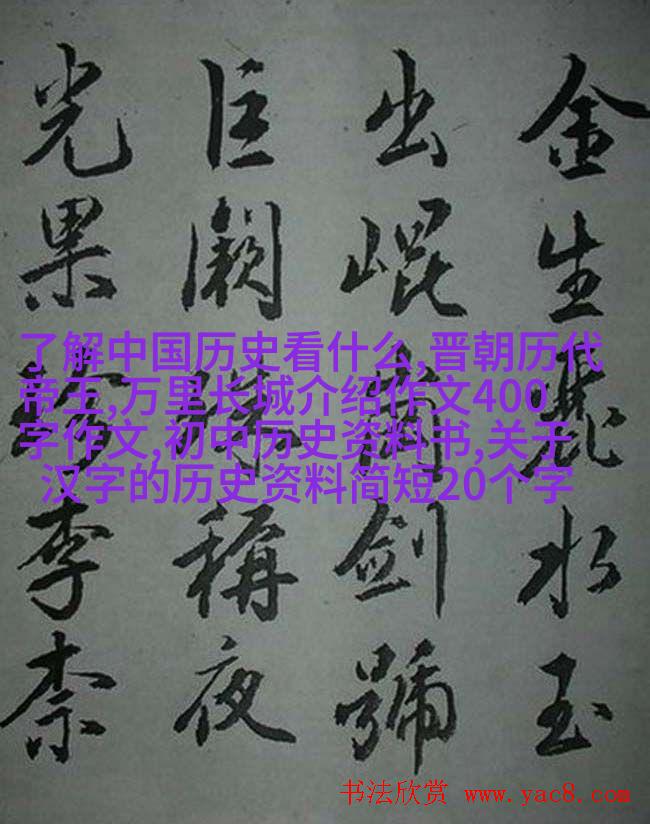 金生麗水玉
出崐岡劍號
巨闕珠稱夜
光果珍李柰
了解中国历史看什么,晋朝历代
帝王,万里长城介绍作文400
字作文,初中历史资料书,关于
汉字的历史资料简短20个字
书法欣赏 www.yac8.com